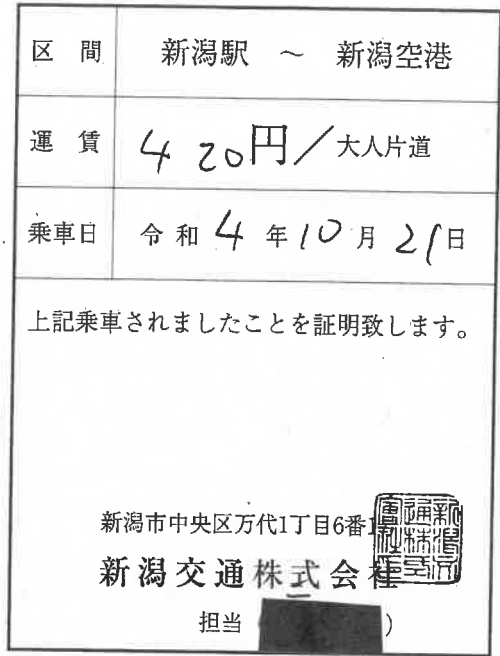 区間 新潟駅 ～ 新潟空港
運賃 420円／大人片道
乗車日 令和4年10月21日
上記乗車されましたことを証明致します。
新潟市中央区万代1丁目6番1
新潟交通株式会社
担当( )